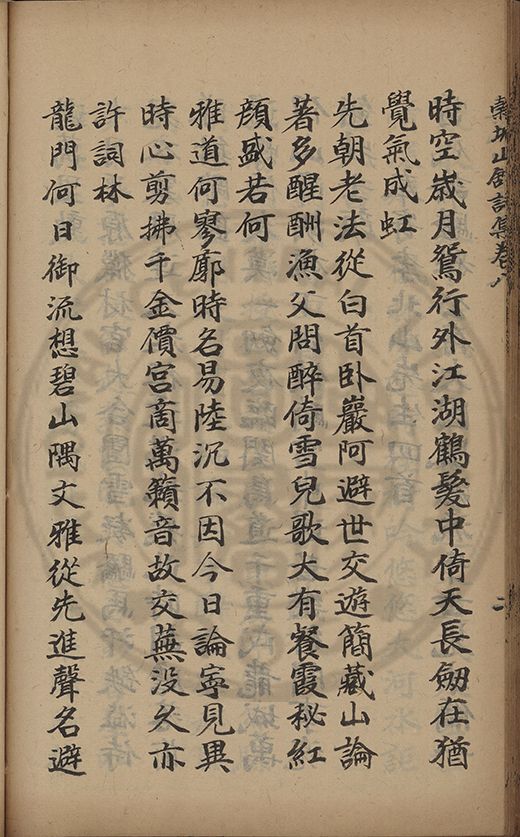 山舘詩集卷八
二
時空歲月鴛行外江湖鶴髮中倚天長劒在猶
覺氣成虹
先朝老法從白首卧巖阿避世交遊簡藏山論
著多醒酬漁父問醉倚雪兒歌大有餐霞秘紅
顔盛若何
雅道何寥廓時名易陸沉不因今日論寧見異
時心剪拂千金價宮商萬籟音故交蕪没久亦
許詞林
龍門何日御流想碧山隅文雅從先進聲名避